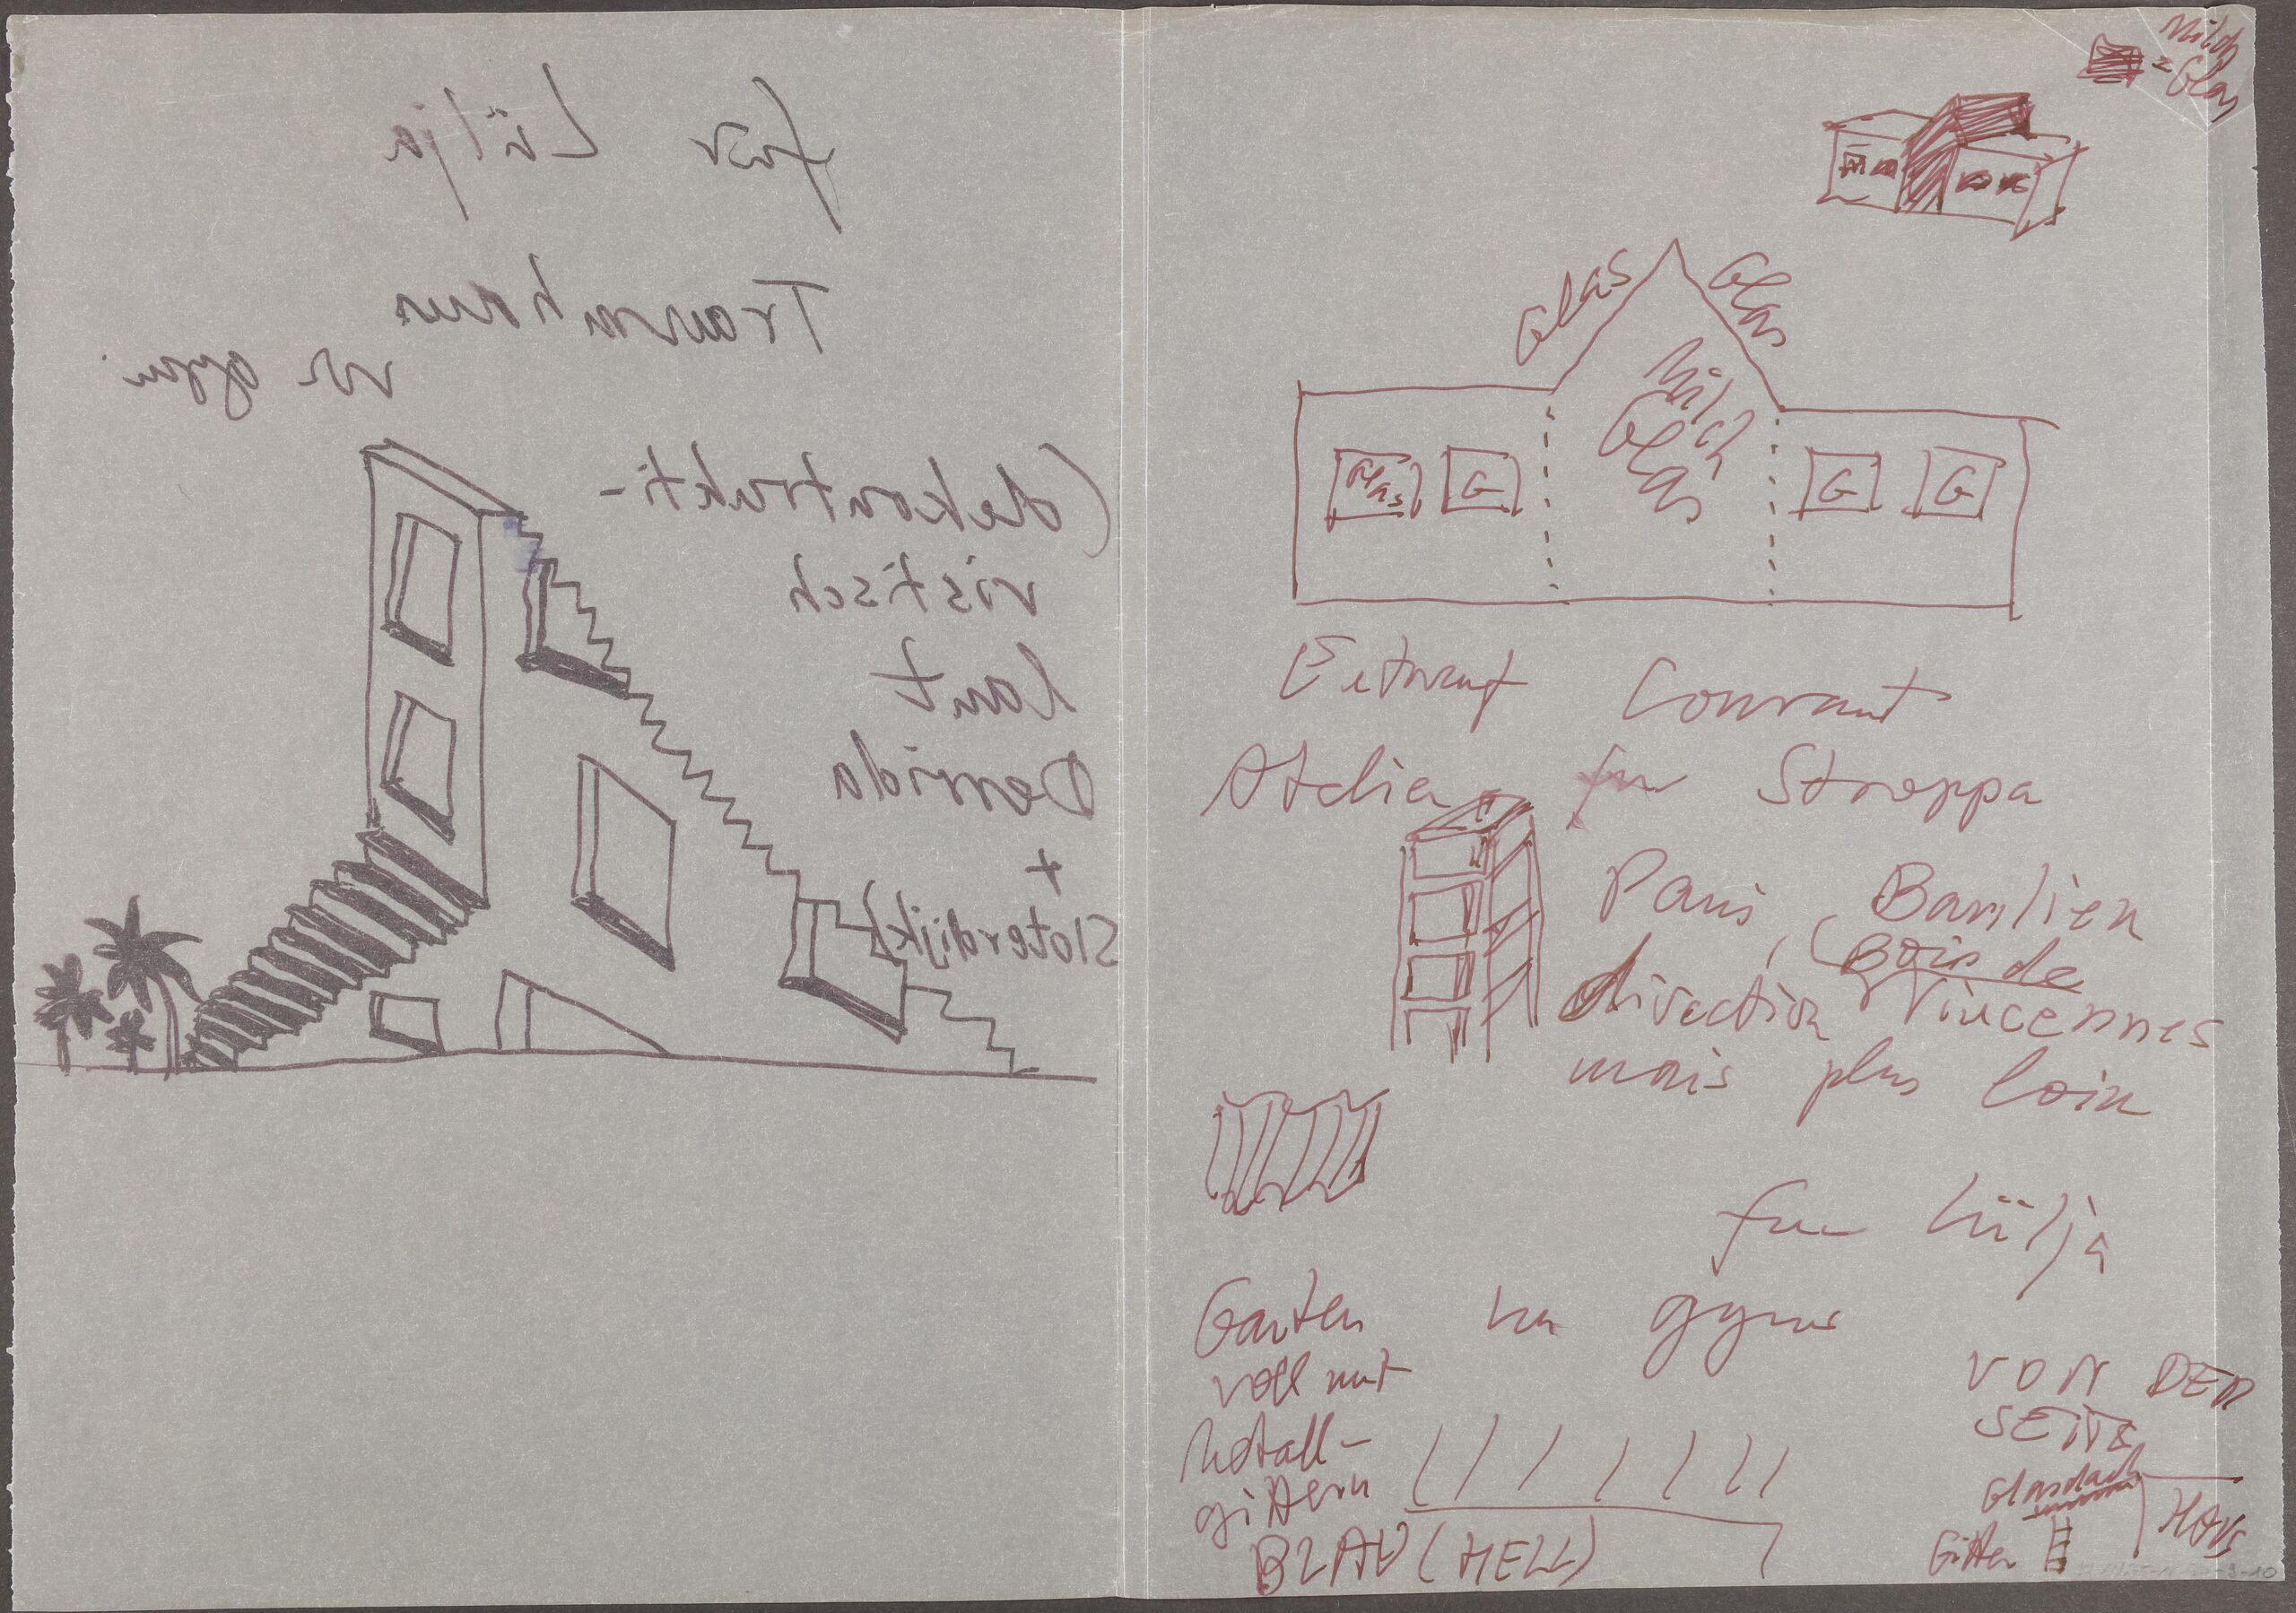 für Lülja
Traumhaus
von gyuri
(dekontrukti-
vistisch
laut
Derrida
+
Sloterdijk)
Milch
= Glas
Glas
Glas
Milch
Glas
Glas G G G
Entwurf Courant
Atelier für Stroppa
Paris, Banlien
(Bois de
direction Vincennes
mais plus loin
für Lülja
Garten von gyuri
voll mit
Metall-
gittern
BLAU (HELL)
VON DER
SEITE
Glasdach
Haus
Gitter